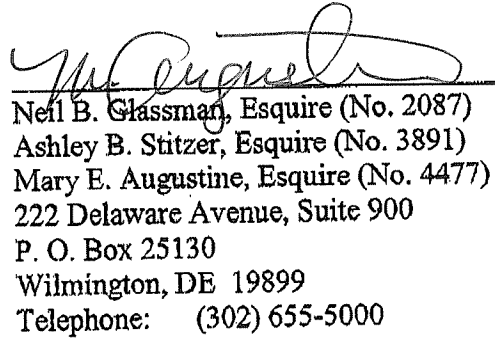 M Augustine
Neil B. Glassman, Esquire (No. 2087)
Ashley B. Stitzer, Esquire (No. 3891)
Mary E. Augustine, Esquire (No. 4477)
222 Delaware Avenue, Suite 900
P. O. Box 25130
Wilmington, DE 19899
Telephone: (302) 655-5000